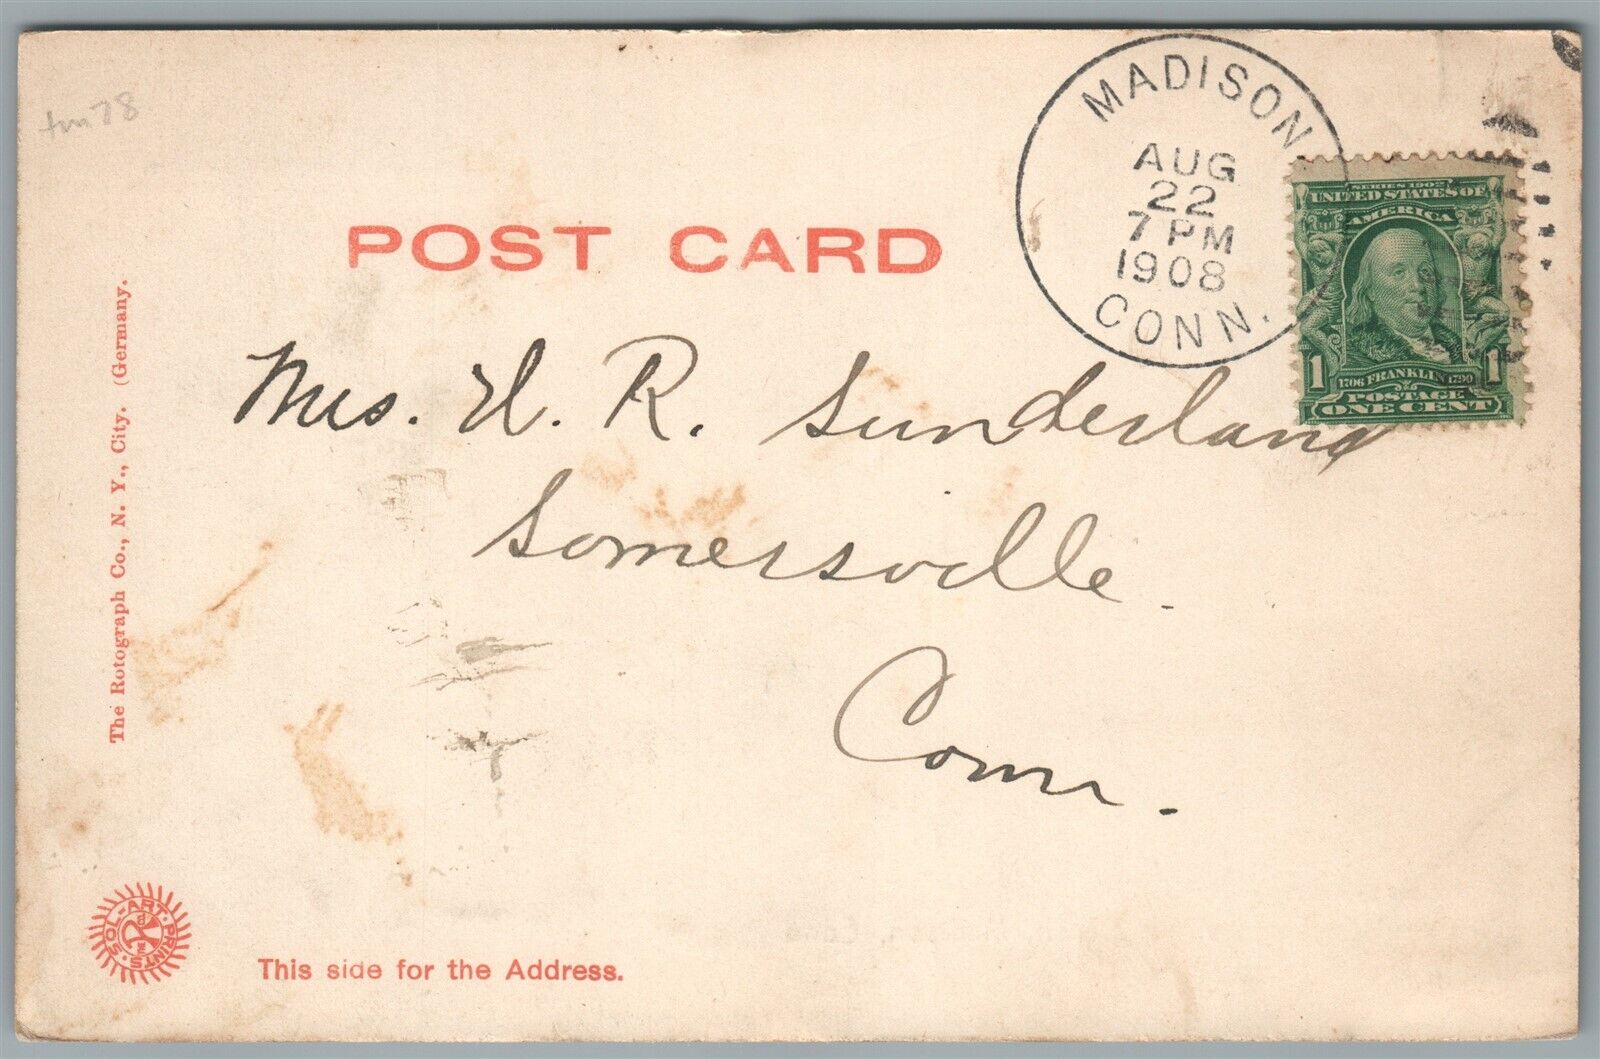 MADISON
AUG
22
7 PM
1908
CONN.
SERIES 1902
UNITED STATES OF
AMERICA
1 1
1706 FRANKLIN 1790
POSTAGE
ONE CENT
POST CARD
Mrs. H. R. Sunderland
Somersville.
Conn.
The Rotograph Co., N. Y., City. (Germany.
SOL-ART-PRINTS
This side for the Address.